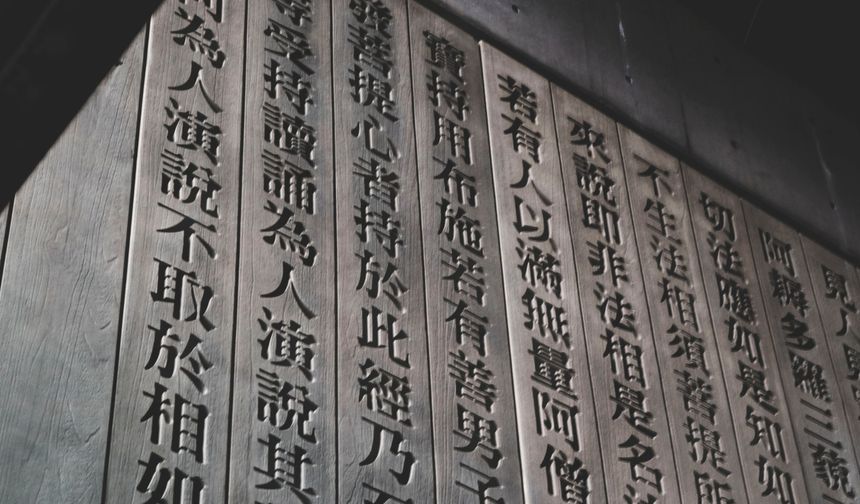 見人見
阿耨多羅三藐
切法應如是知如
不生法相須菩提所
來說即非法相是名法
若有人以滿無量阿僧
寶持用布施若有善男子
發菩提心者持於此經乃
等受持讀誦為人演說其
何為人演說不取於相如